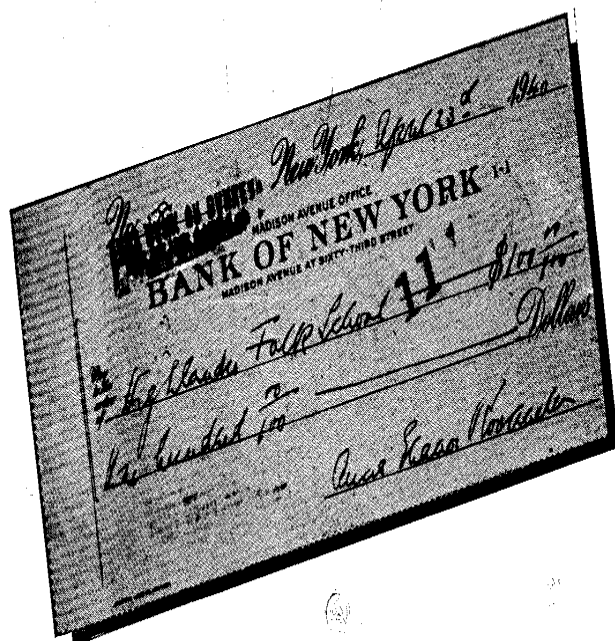 New York, April 23d 1940
MADISON AVENUE OFFICE
BANK OF NEW YORK 1-1
MADISON AVENUE AT SIXTY-THIRD STREET
Highlander Folk School $100 no/100
One hundred no/100 Dollars
Anna Eleanor Roosevelt